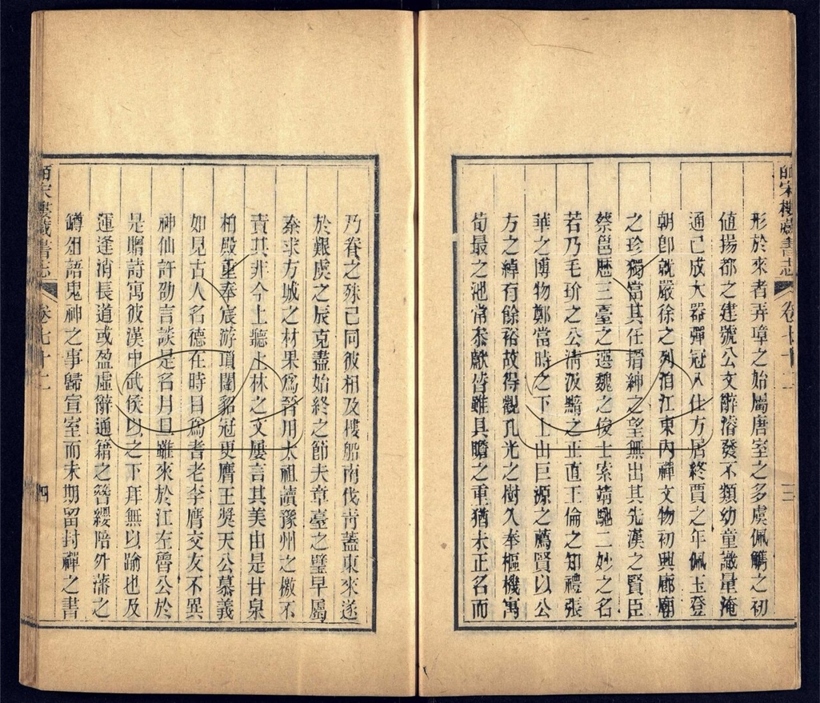 形於來者弄璋之始屬唐室之多虞佩觿之初
値揚都之建號公文辭濬發不類幼童識量淹
通已成大器彈冠入仕方居終賈之年佩玉登
朝卽就嚴徐之列洎江東內禪文物初興廊廟
之珍獨當其任搢紳之望無出其先漢之賢臣
蔡邕歷三臺之選魏之俊士索靖馳二妙之名
若乃毛玠之公淸汲黯之正直王倫之知禮張
華之博物鄭當時之下士山巨源之薦賢以公
方之綽有餘裕故得觀几光之樹久奉樞機寓
荀最之池常叅獻替雖具瞻之重猶未正名而
乃眷之殊已同彼相及樓船南伐靑蓋東來遂
於艱虞之辰克盡始終之節夫章臺之璧早屬
秦求方城之材果爲晉用太祖讀豫州之檄不
責其非今上聽上林之文屢言其美由是甘泉
柏殿重奉宸游項闥貂冠更膺王奬天公慕義
如見古人名德在時目爲耆老李膺交友不異
神仙許劭言談是名月旦雖來於江左魯公於
是贈詩寓彼漢中武侯以之下拜無以踰也及
運逢消長道或盈虛辭通籍之簪纓陪外藩之
鱒俎語鬼神之事歸宣室而未期留封禪之書
皕宋樓藏書志
卷七十二
四